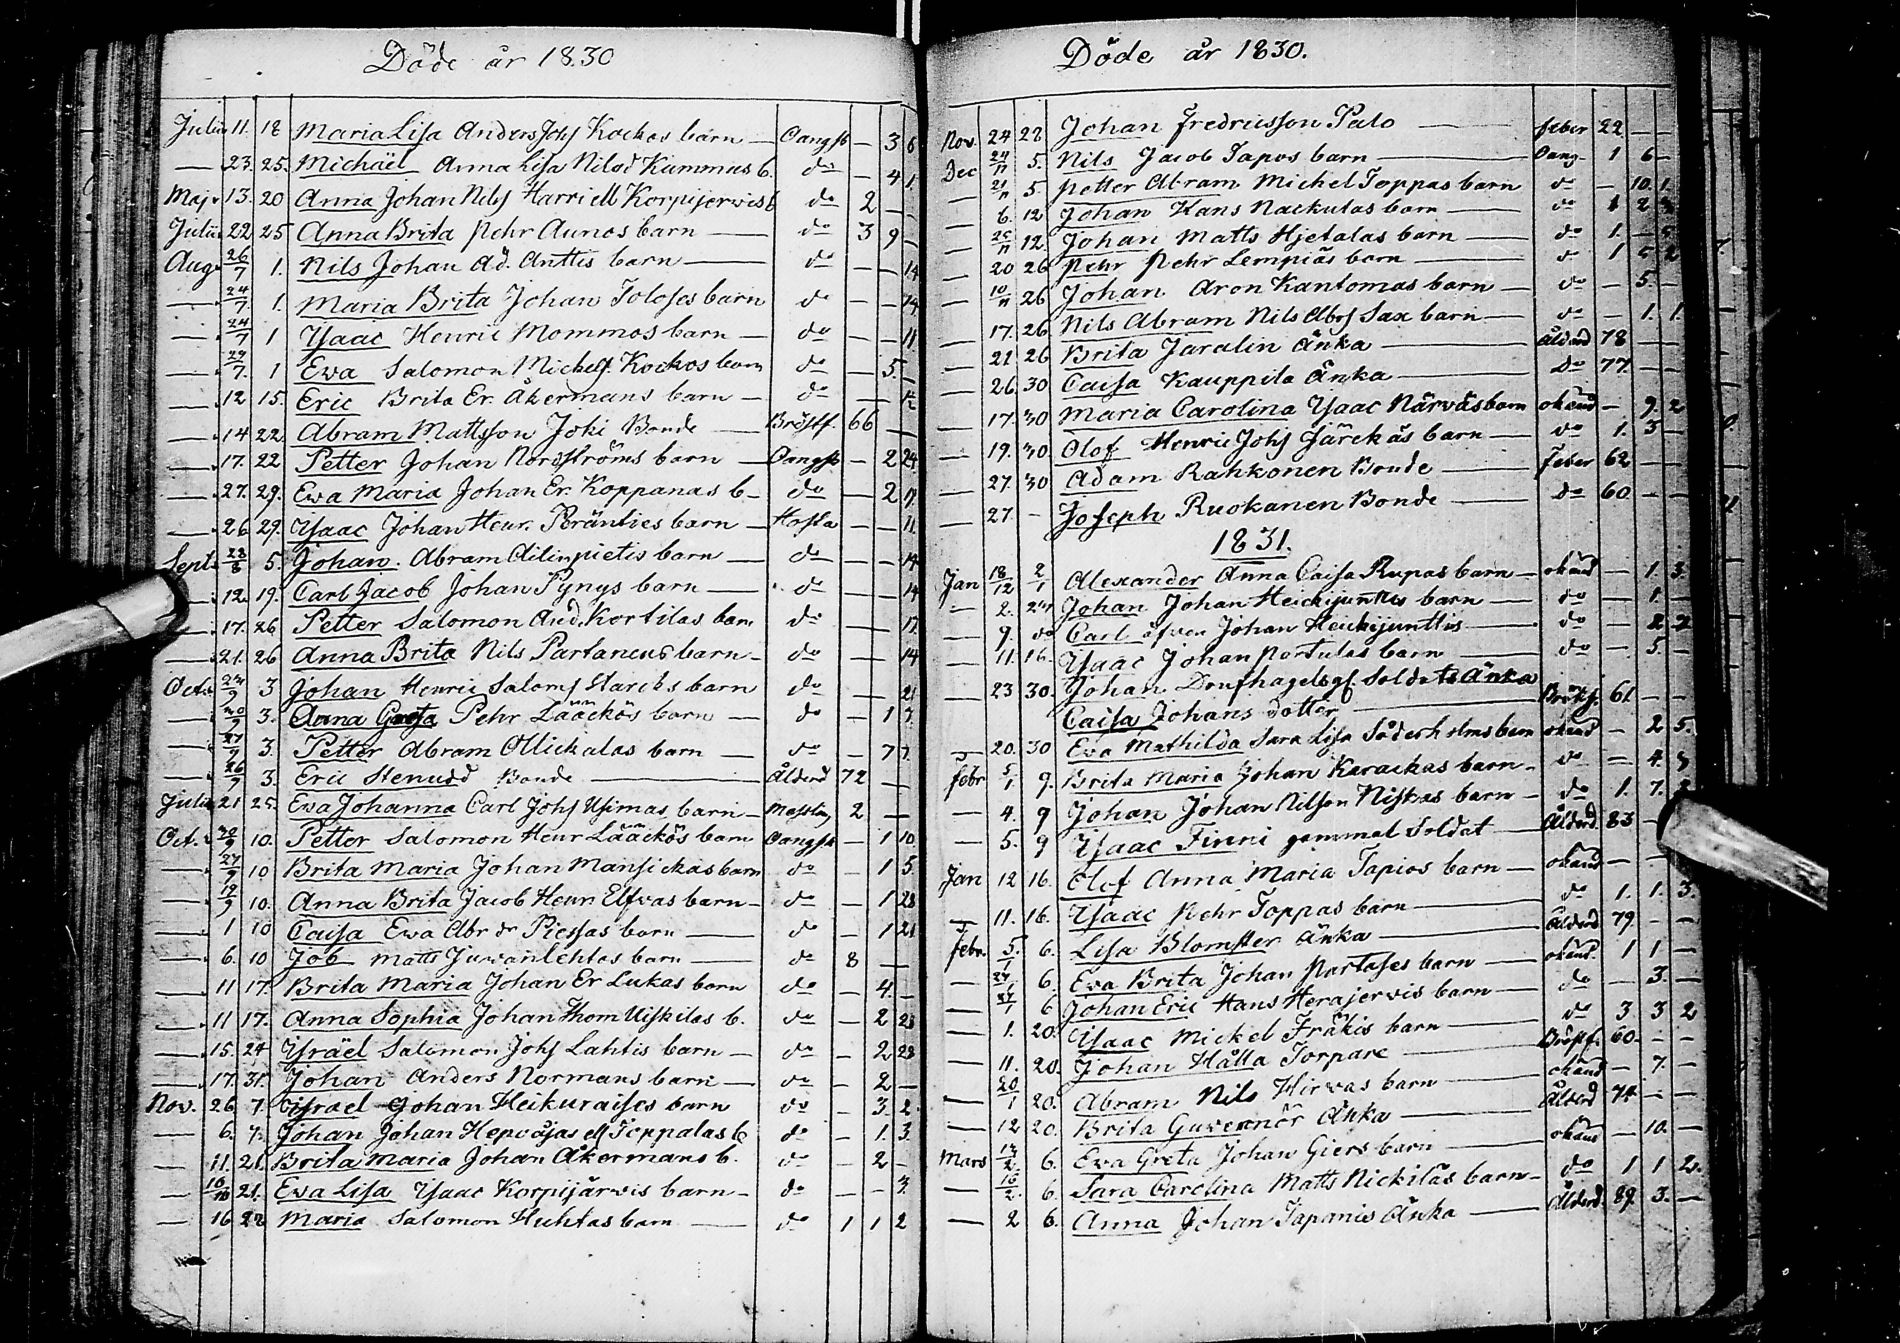 Döde år 1830
Julii 11. 18 Maria Lisa Anders Johs Kockos barn — Oangifv — 3 8
— 23. 25. Michael Anna Lisa Nilsd Kummus b. do — 4 1.
Maj 13. 20 Anna Johan Nils Harri ell Korpijerwis b do 2 — —
Julii 22 25 Anna Brita Pehr Aunos barn — do 3 9 —
Aug. 26/7 1. Nils Johan Ad. Anttis barn — do — — 14
— 24/7. 1. Maria Brita Johan Tolosès barn do — — 14
— 24/7 1 Ysaac Henric Mommos barn — do — — 11
— 29/7. 1 Ewa Salomon Michels Kockos barn do — 5. —
— 12 15. Eric Brita Er. Åkermans barn — do —
— 14 22 Abram Mattsson Joki Bonde — Bröstf. 66 —
— 17. 22 Petter Johan Nordströms barn — Oangifv — 2 24
— 27. 29. Ewa Maria Johan Er. Koppanas b — do — 2 17
— 26 29. Ysaac Johan Henr. Peränties barn — Hosta — — 11.
Sept. 28/8 5. Johan. Abram Ailinpietis barn — do — — 14
— 12. 19. Carl Jacob Johan Pynys barn — do — — 14
— 17. 26 Petter Salomon And. Kortilas barn do — — 17.
— 21. 26 Anna Brita Nils Partanens barn — do — — 14
Oct. 3 Johan Henric Saloms Harcks barn do — — 21
— 3. Anna Greta Pehr Lääckös barn — do — 1 7.
— 27/9 3. Petter Abram Ollickalas barn — do — 7 7.
— 26/9 3. Eric Stenudd Bonde — Ålderd 72 —
Julii 21 25. Ewa Johanna Carl Johs Usimas barn — Messling 2 —
Oct. 30/9 10. Petter Salomon Henr Lääckös barn Oangifv — 1 10
— 27/9 10 Brita Maria Johan Mansickas barn do — 1 5
— 19/9 10. Anna Brita Jacob Henr Elfvas barn — do — 1 28
— 1 10 Caisa Ewa Abr dr Piessas barn — do — 1 21
— 6. 10 Job Matts Juwanlehtos barn — do 8 —
— 11 17. Brita Maria Johan Er Lukas barn do — 4 —
— 11 17. Anna Sophia Johan Thom Uiskilas b. do — 2 28
— 15. 24 Ysräel Salomon Johs Lahtis barn — do — 2 28
— 17. 31. Johan Anders Normans barn — do — 2 —
Nov. 26. 7. Israel Johan Heikuraises barn do — 3 2.
— 6. 7. Johan Johan Hepojas ell Toppalas b do — 1. 3.
— 11. 21. Brita Maria Johan Åkermans b. do — 2 —
— 16/10 21. Ewa Lisa Ysaac Korpijärwis barn — do — — 3.
— 16 22 Maria Salomon Huhtas barn — do 1 1 2
Döde år 1830.
Nov. 24 22 Johan Fredricsson Palo — feber 22 — —
Dec 24/11 5. Nils Jacob Tapos barn — Oang. 1 6 —
— 21/11 5. Petter Abram Michel Toppas barn do — 10. 1.
— 6. 12 Johan Hans Nackulas barn — do 1 2
— 25/11 12. Johan Matts Hjetalas barn — do 1. — 5.
— 20 26 Pehr Pehr Lempiäs barn — do 1 5 2
— 10/11 26 Johan Aron Kantomas barn — do — 5. —
— 17. 26 Nils Abram Nils Abrs Sax barn — do — 1. 1.
— 21 26 Brita Jaralin Änka — Ålderd 78 —
— 26. 30 Caisa Kauppila Änka — do 77 —
— 17. 30 Maria Carolina Ysaac Närväs barn okänd — 9. 2
— 19. 30 Olof Henric Johs Särckäs barn — do 1. 3 —
— 27. 30 Adam Rahkonen Bonde — feber 62 — —
— 27. — Joseph Ruokanen Bonde — do 60 — —
1831.
Jan 18/12 2/1 Alexander Anna Caisa Rupas barn — okänd — 1. 3.
— 2. Johan Johan Heickijunttis barn — do — 1. —
— 9. do Carl äfven Johan Heickijunttis — do — 2 2
— 11. 16. Ysaac Johan Portulas barn — do — 5 —
— 23 30. Johan Dufhagels gl Soldats Änka
Caisa Johans dotter — Bröstf. 61 — —
— 20. 30 Eva Mathilda Sara Lisa Söderholms barn okänd — 2 5.
Febr 5/1. 9. Brita Maria Johan Karackas barn — do — 4.
— 4. 9 Johan Johan Nilsson Niskas barn — do 1. 7.
— 5. 9 Ysaac Finni gammal Soldat — Ålderd. 83 —
Jan 12 16. Olof Anna Maria Tapios barn — okänd — —
— 11. 16. Ysaac Pehr Toppas barn — do 1. 1. 3.
Febr. 5/1 6. Lisa Blomster Änka — Ålderd 79. — —
— 24/1 6. Eva Brita Johan Partases barn — okänd 1 1 —
— 27/1 6 Johan Eric Hans Herajerwis barn — do — 3. —
— 1. 20. Ysaac Mickel Fräkis barn — do 3 3 2
— 11. 20. Johan Hälla Torpare — Bröstf. 60. — —
— 20/1 20. Abram Nils Hirvas barn — okänd — 7. —
— 12 20. Brita Guvernör Änka — Ålderd 74 — —
Mars 6. Ewa Greta Johan Giers barn — okänd — 10. —
— 16/2. 6. Sara Carolina Matts Nickiläs barn — do 1 1 2.
— 2 6. Anna Johan Tapanis Änka — Ålderd. 89. 3. —